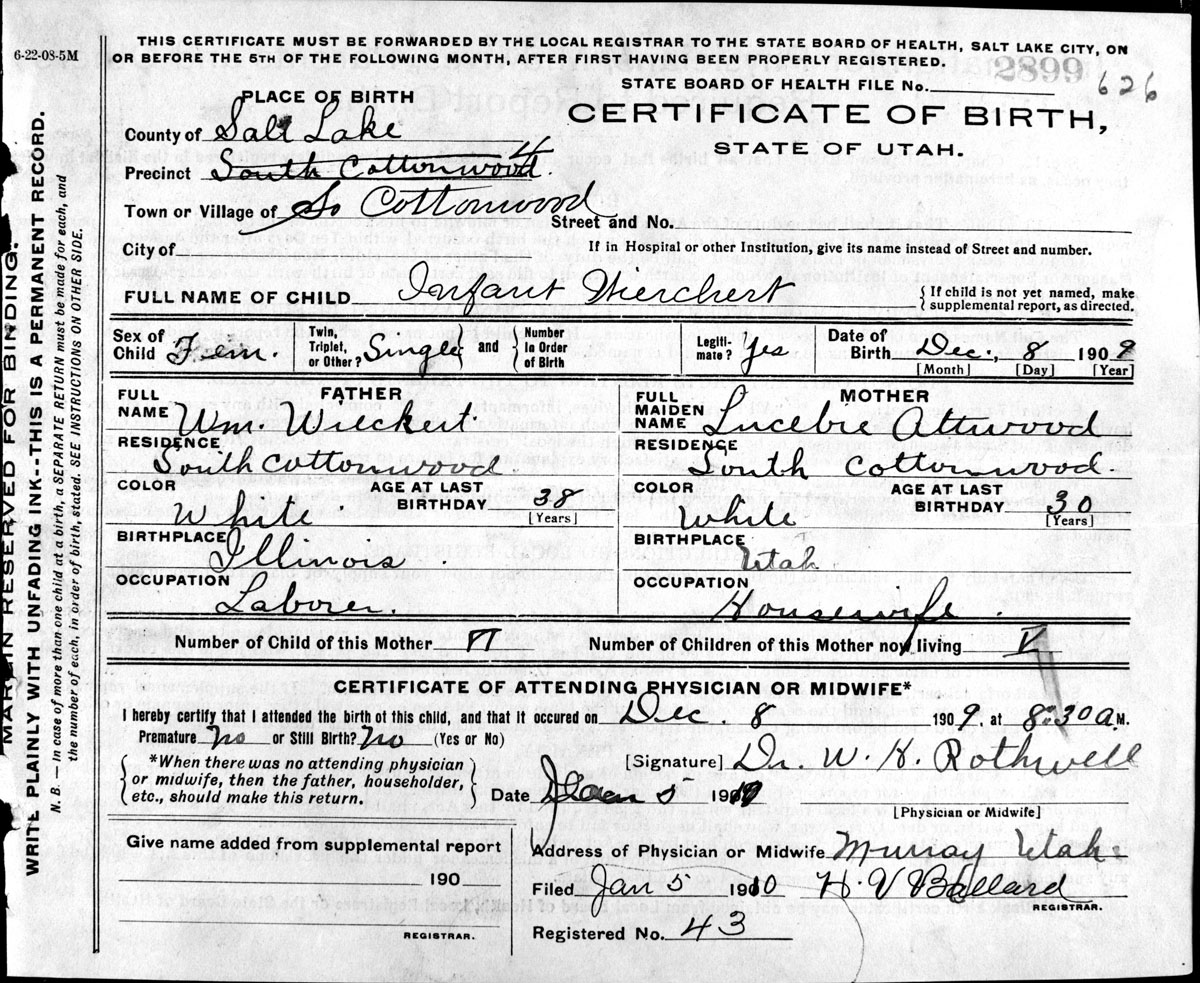 6-22-08-5M
THIS CERTIFICATE MUST BE FORWARDED BY THE LOCAL REGISTRAR TO THE STATE BOARD OF HEALTH, SALT LAKE CITY, ON
OR BEFORE THE 5TH OF THE FOLLOWING MONTH, AFTER FIRST HAVING BEEN PROPERLY REGISTERED.
2899
STATE BOARD OF HEALTH FILE No.
626
CERTIFICATE OF BIRTH,
STATE OF UTAH.
PLACE OF BIRTH
County of Salt Lake
Precinct South Cottonwood.
Town or Village of So Cottonwood
Street and No.
City of
If in Hospital or other Institution, give its name instead of Street and number.
FULL NAME OF CHILD Infant Wierchert
{ If child is not yet named, make
supplemental report, as directed.
Sex of
Child Fem.
Twin,
Triplet,
or Other? Single and
Number
in Order
of Birth
Legiti-
mate? Yes
Date of
Birth Dec. 8 1909
[Month] [Day] [Year]
FATHER
FULL
NAME Wm. Wieckert
RESIDENCE
South Cottonwood
COLOR
White
AGE AT LAST
BIRTHDAY 38
[Years]
BIRTHPLACE
Illinois
OCCUPATION
Laborer.
MOTHER
FULL
MAIDEN
NAME Lucebie Attwood
RESIDENCE
South Cottonwood
COLOR
White
AGE AT LAST
BIRTHDAY 30
[Years]
BIRTHPLACE
Utah
OCCUPATION
Housewife.
Number of Child of this Mother
Number of Children of this Mother now living V
CERTIFICATE OF ATTENDING PHYSICIAN OR MIDWIFE*
I hereby certify that I attended the birth of this child, and that it occured on Dec. 8 1909, at 8:30 A.M.
Premature No or Still Birth? No (Yes or No)
*When there was no attending physician
or midwife, then the father, householder,
etc., should make this return.
[Signature] Dr. W. H. Rothwell
Date Jan 5 1910
[Physician or Midwife]
Give name added from supplemental report
190
REGISTRAR.
Address of Physician or Midwife Murray Utah.
Filed Jan 5 1910 H. V Ballard
REGISTRAR.
Registered No. 43
MARGIN RESERVED FOR BINDING.
WRITE PLAINLY WITH UNFADING INK--THIS IS A PERMANENT RECORD.
N. B. — In case of more than one child at a birth, a SEPARATE RETURN must be made for each, and
the number of each, in order of birth, stated. SEE INSTRUCTIONS ON OTHER SIDE.